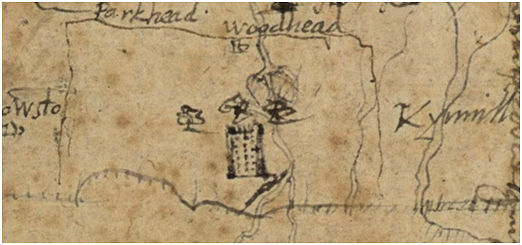 Parkhead
Woodhead
owsto
Kynnill